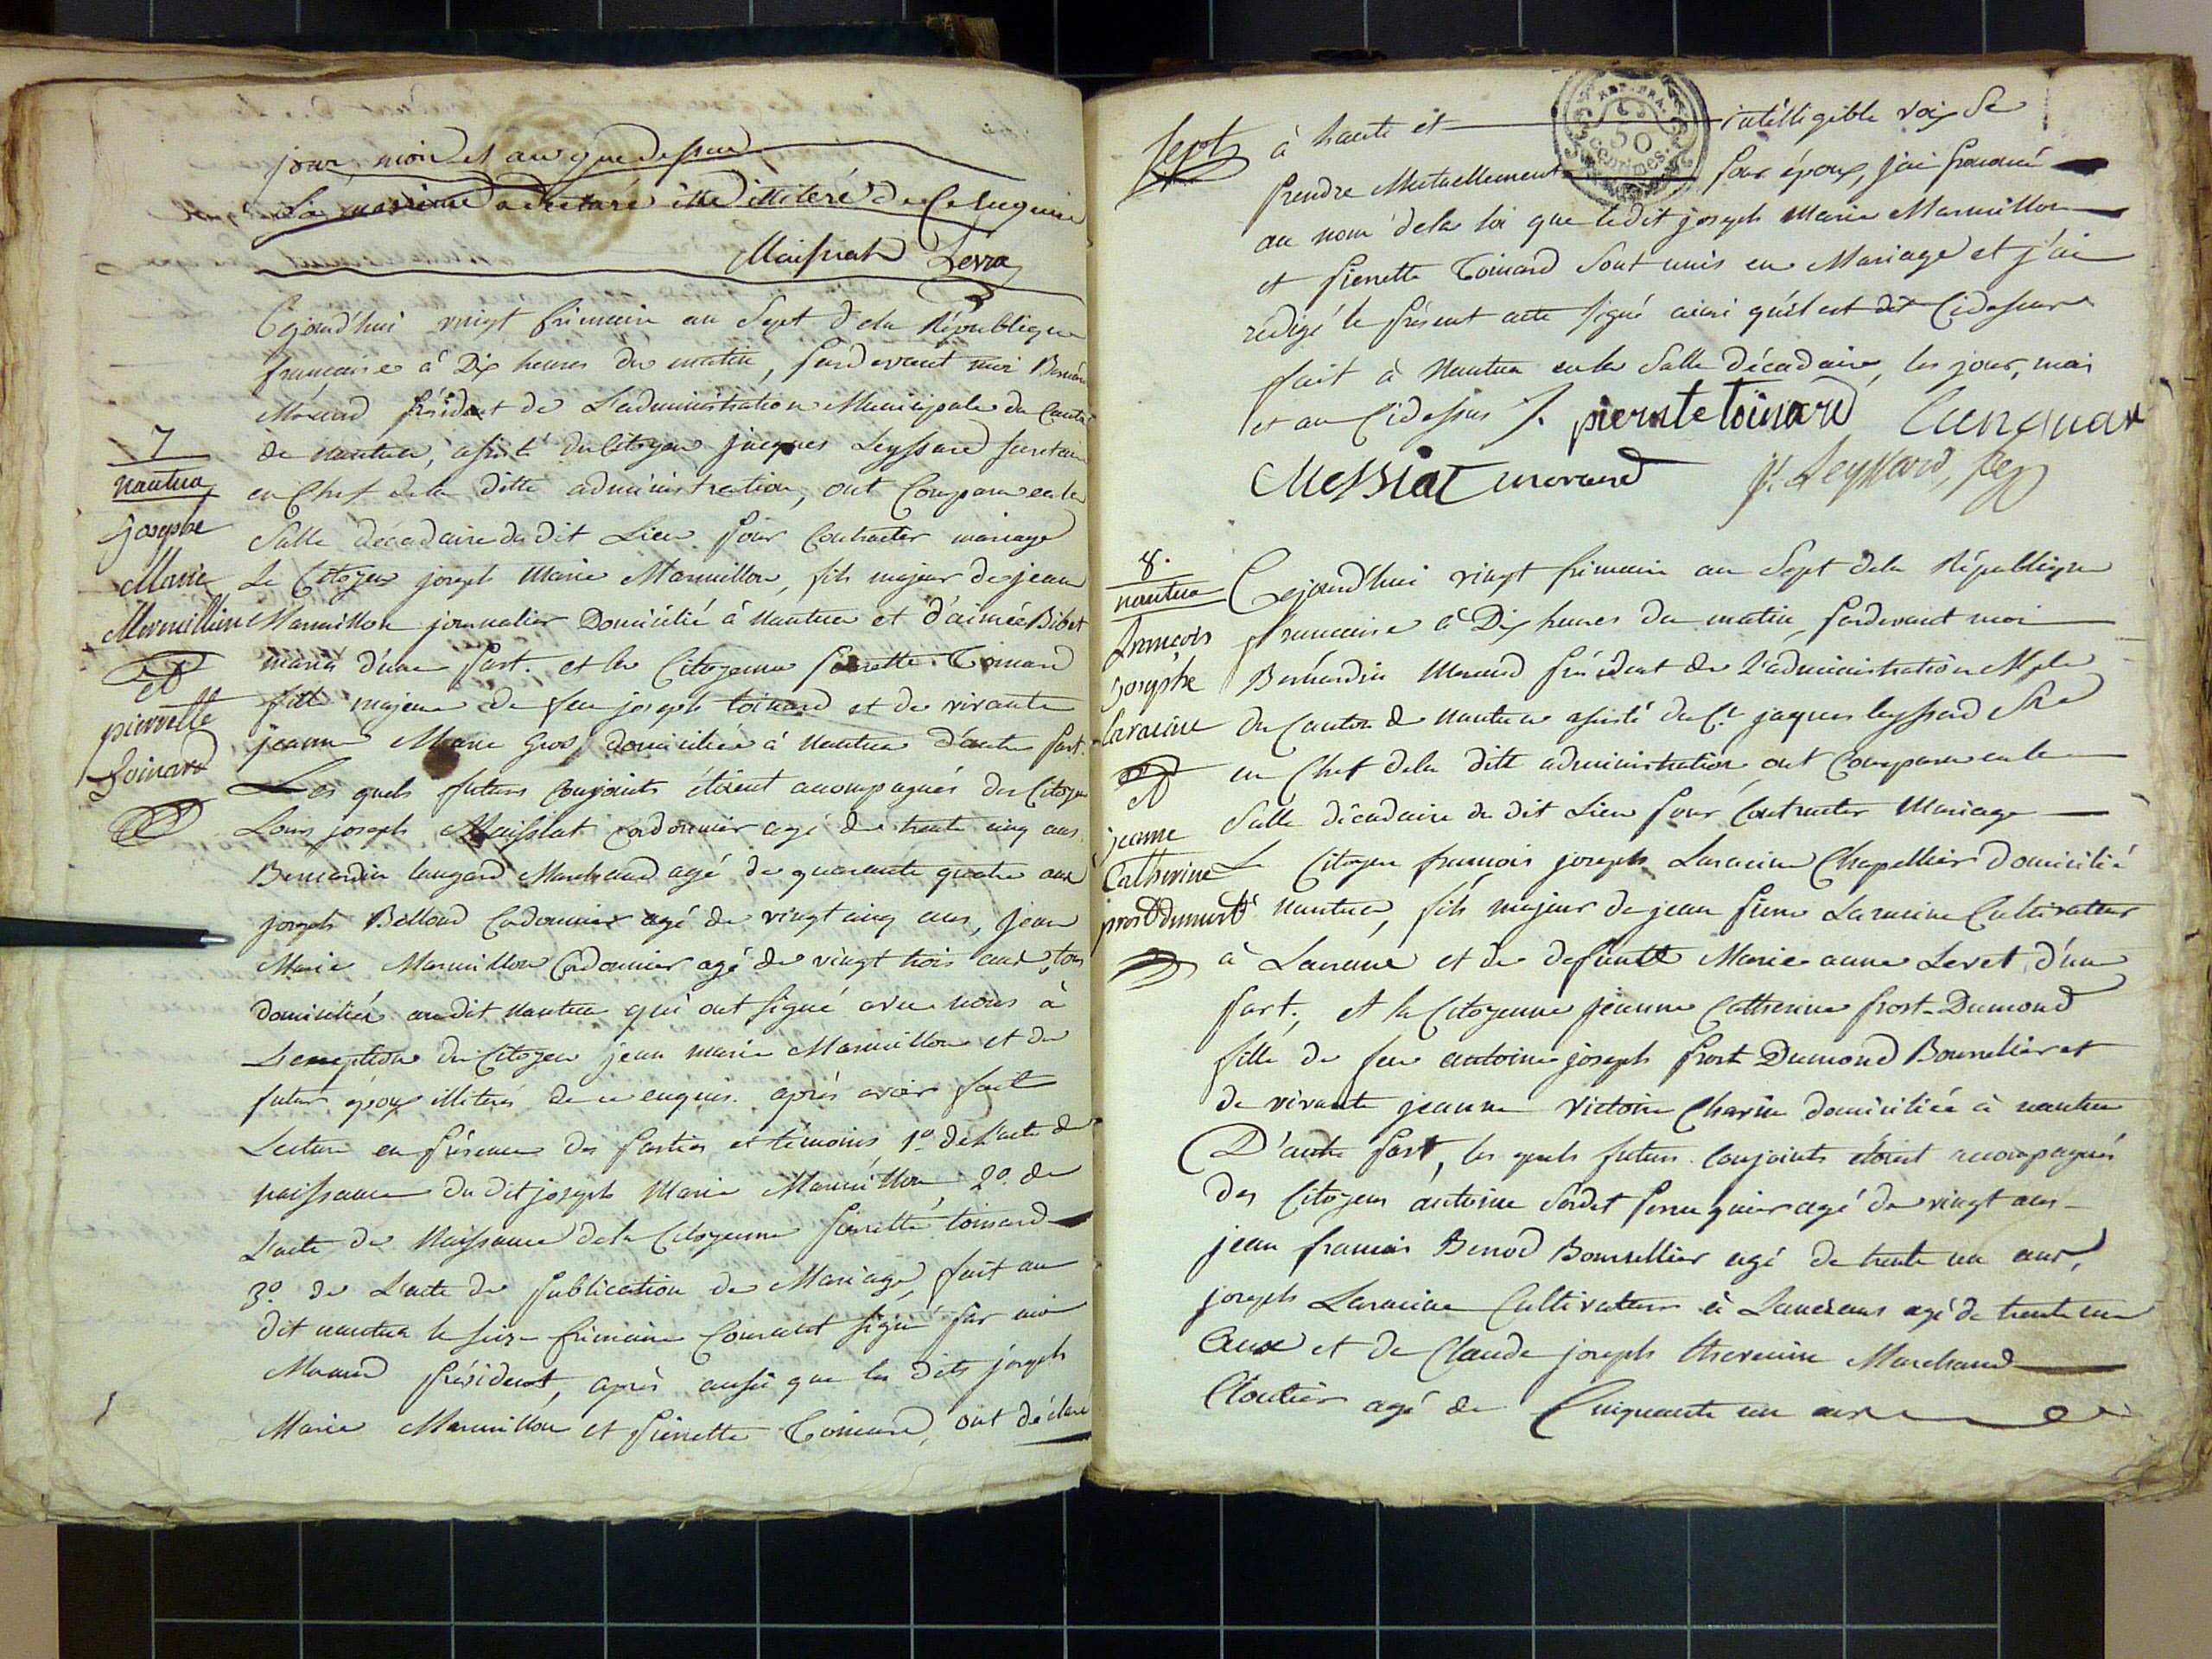 jour, mois et an que dessus
La mariée a declaré être illiteré de ce enquise
Maissiat Levra
7
nantua
Josephe
Marie
Mermillion
et
pierrette
Toinard
Cejourd'hui vingt frimaire an Sept dela République
francaise à Dix heures du matin, pardevant moi Bernardin
Morand président de L'administration Municipale du Canton
de nantua, assisté du Citoyen jacques Leyssard secretaire
en Chef dela ditte administration, ont Comparu en la
Salle décadaire du dit Lieu pour Contracter mariage
Le Citoyen joseph Marie Marmillon, fils majeur de jean
Marmillon journalier Domicilié à Nantua et d'aimée Bibet
mariés d'une part. et la Citoyenne pierrette Toinard
fille majeure de feu joseph toinard et de vivante
jeanne Marie Gros, domiciliée à Nantua d'autre part.
Les quels futurs Conjoints étoient accompagnés des Citoyens
Louis joseph Maissiat Cordonnier agé de trente cinq ans.
Bernardin langard Marchand agé de quarante quatre ans
joseph Belloud Cordonnier agé de vingt cinq ans, Jean
Marie Marmillon Cordonnier agé de vingt trois ans, tous
domiciliés au dit Nantua qui ont signé avec nous à
L'exception du Citoyen jean marie Marmillon et du
futur époux illiterés de ce enquis. après avoir fait
Lecture en présence des parties et témoins, 1º. de l'acte de
naissance du dit joseph Marie Marmillon, 2º. de
L'acte de Naissance dela Citoyenne pierrette toinard
3º. de L'acte de publication de Mariage, fait au
dit nantua le seize frimaire Courant signé par moi
Morand président, après aussi que les dits joseph
Marie Marmillon et pierrette Toinard, ont déclaré
Sept
à haute et intélligible voix Se
prendre Mutuellement pour époux, j'ai prononcé
REP. FRA.
50
centimes.
au nom dela loi que ledit joseph Marie Marmillon
et pierrette Toinard Sont unis en Mariage et j'ai
redigé le présent acte signé ainsi qu'il est dit Cidessus
fait à Nantua en la Salle décadaire, les jour, mois
et an Cidessus /. pierrete toinard Langnar
Messiat morand jq. Leyssard, seg
8.
nantua
François
Josephe
laracine
et
jeanne
Catherine
prost dumont
Cejourd'hui vingt frimaire an Sept dela République
francaise à Dix heures du matin, pardevant moi
Bernardin Morand président de l'administration Mple
du Canton de Nantua assisté du Ct. jaques leyssard Sre
en Chef dela ditte administration ont Comparu en la
Salle décadaire du dit Lieu pour Contracter Mariage
Le Citoyen francois joseph Laracine Chapellier Domicilié
à Nantua, fils majeur de jean pierre Laracine Cultivateur
à Lancrans et de defunte Marie anne Levet d'une
part; et la Citoyenne jeanne Catherine prost-Dumond
fille de feu antoine joseph prost Dumond Bourrelier et
de vivante jeanne Victoire Charvin domiciliée à nantua
D'autre part, les quels futurs Conjoints étoient accompagnés
des Citoyens antoine Sordet perruquier agé de vingt ans
jean francois Benod Bourrellier agé de trente un ans,
joseph Laracine Cultivateur à Lancrans agé de trente un
ans et de Claude joseph thevenin Marchand
Cloutier agé de Cinquante un ans